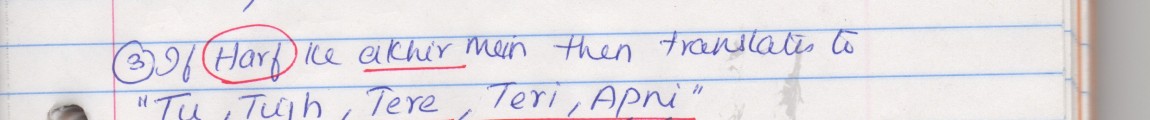 ③ If Harf ke akhir mein then translates to
"Tu, Tujh, Tere, Teri, Apni"